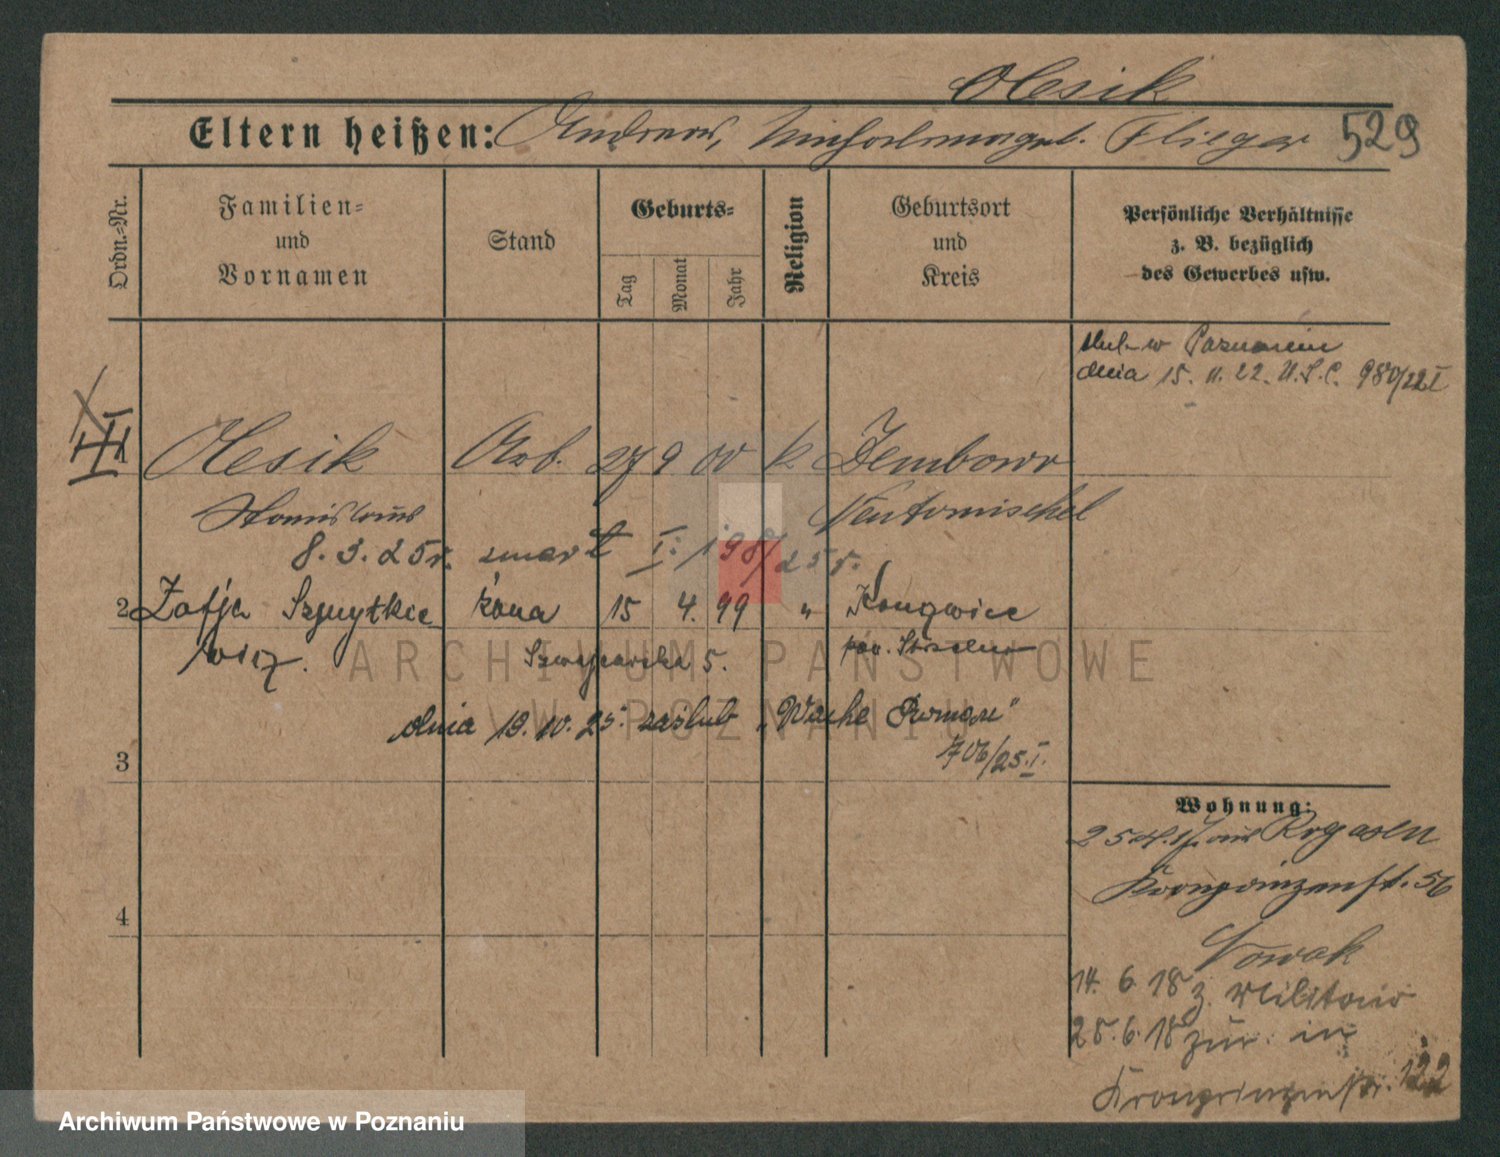 Olesik
Eltern heißen: Andreas, geb. Flieger 529
Ordn.-Nr.
Familien-
und
Vornamen
Stand
Geburts-
Tag
Monat
Jahr
Religion
Geburtsort
und
Kreis
Persönliche Verhältnisse
z. B. bezüglich
des Gewerbes usw.
ślub w Poznaniu
dnia 15. 11. 22. U.S.C. 980/22 I
Olesik Arb. 27 9 00 k Zembowo
Stanislaus Neutomischel
8. 3. 25 r. zmarł I: 198/25 r.
2 Zofja Szymytkie żona 15 4. 99 "
wicz. Szwajcarska 5. pow. Strzelno
dnia 18. 10. 25. zaślub „Wache Roman"
706/25. I.
3
Wohnung:
25 4. 17. aus Rogasen
Kronprinzenst. 56
4
Nowak
14. 6. 18 z. Militär
25. 6. 18 zur. in
Kronprinzenstr. 122
ARCHIWUM PAŃSTWOWE
W POZNANIU
Archiwum Państwowe w Poznaniu